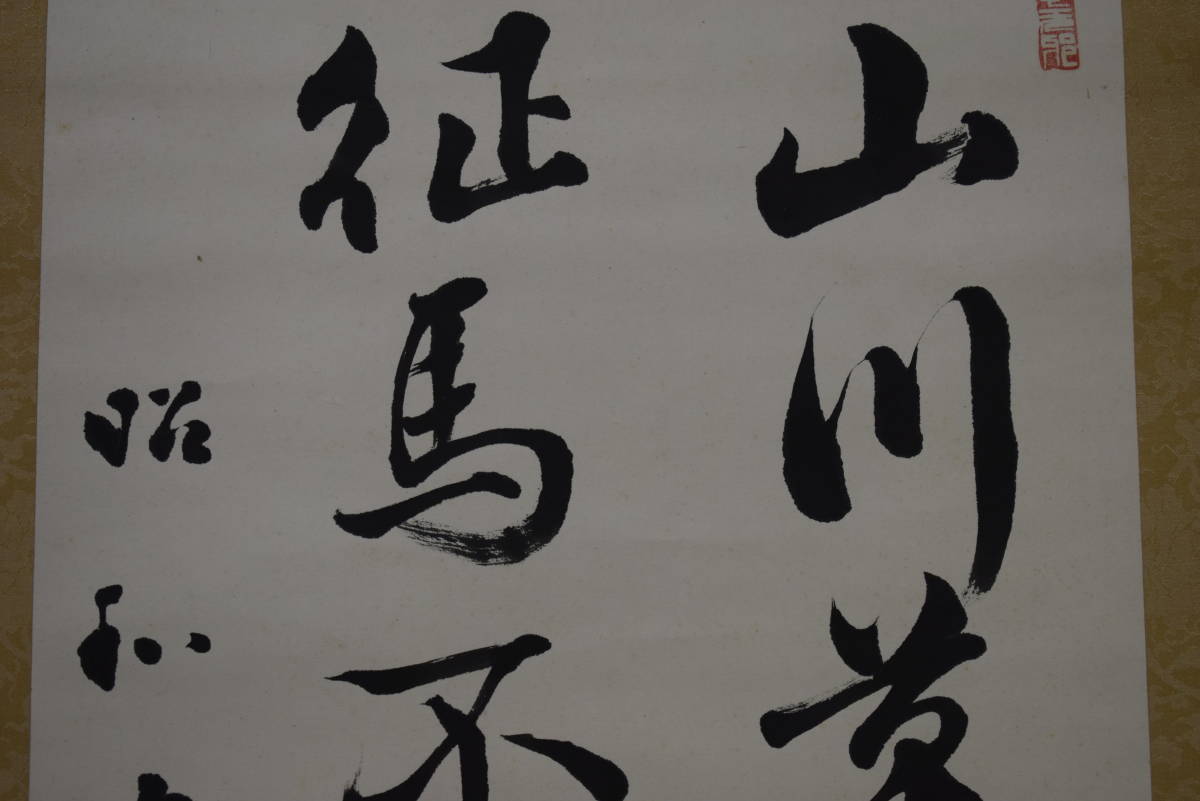 山川草
征馬不
昭和